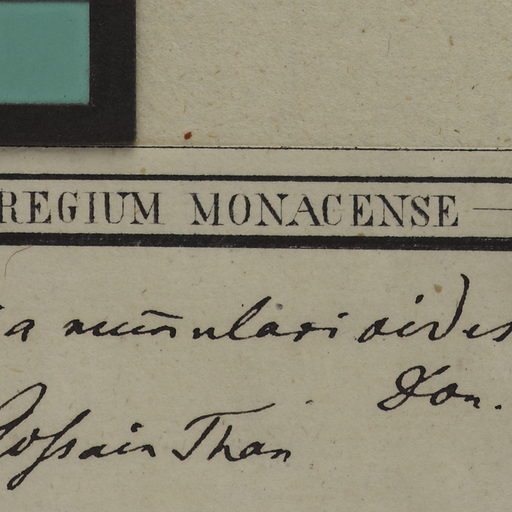 REGIUM MONACENSE —
ia num̄ularioides
Don.
Gossain Than